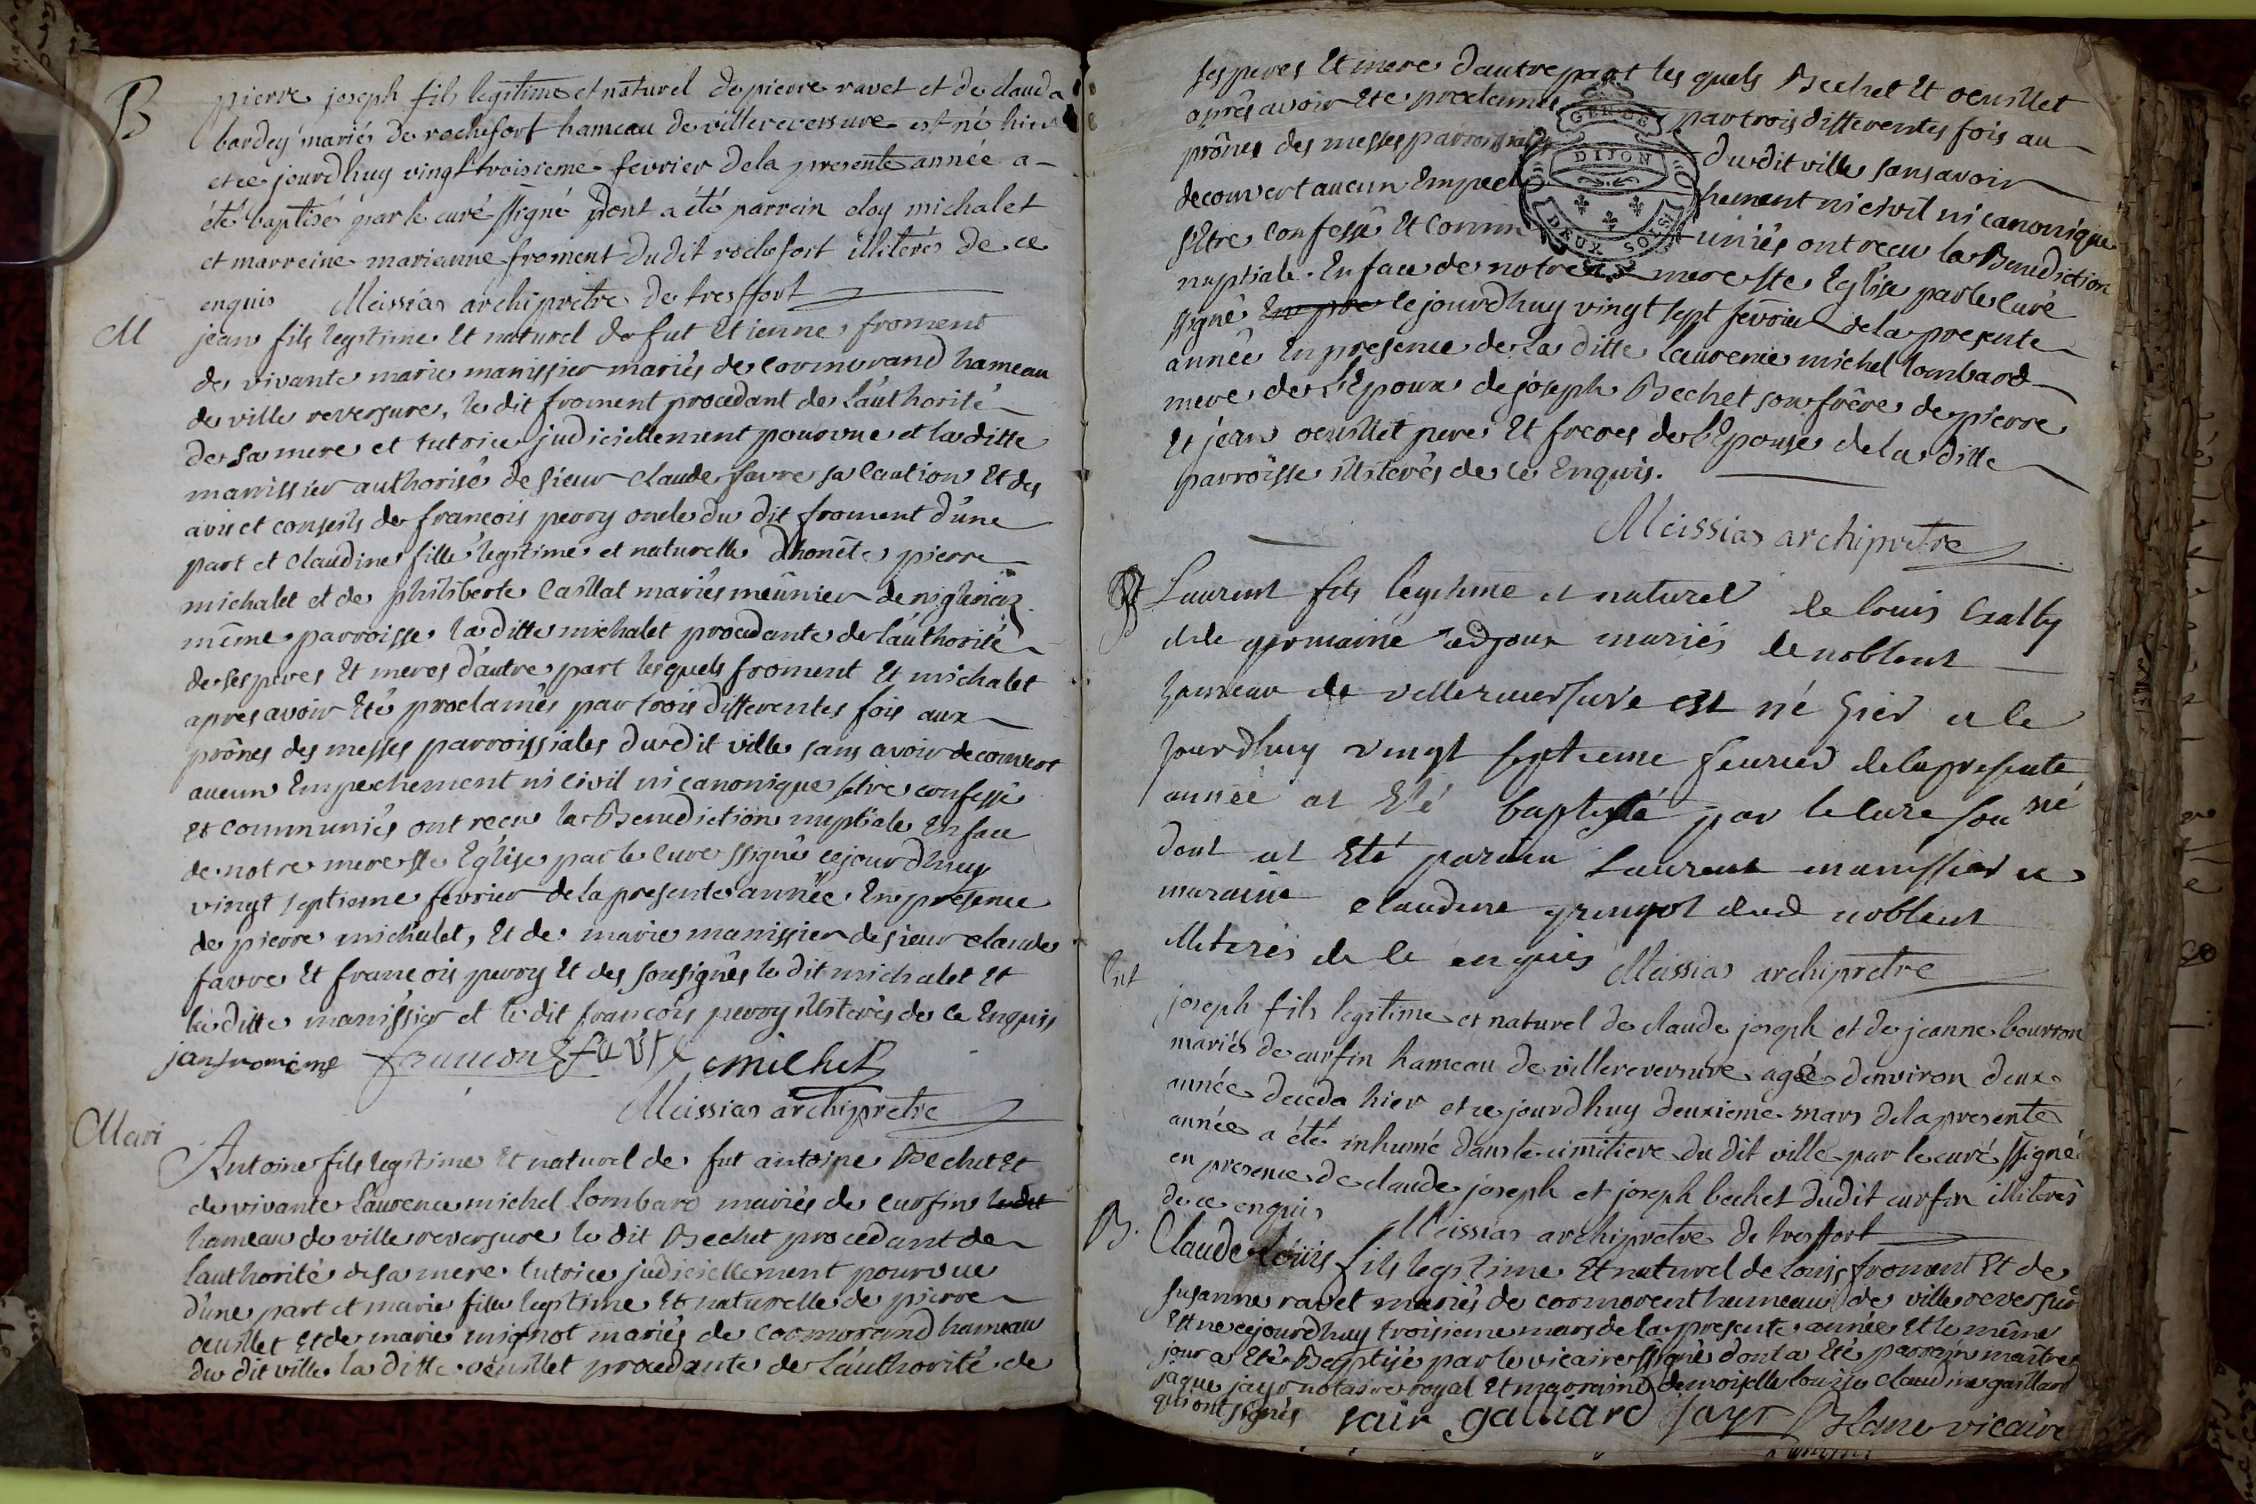 B
pierre joseph fils legitime et naturel de pierre ravet et de clauda
bardey mariés de rochefort hameau de villereversure est né hier
et ce jourdhuy vingt troisieme fevrier dela presente année a
été baptisé par le curé ssigné dont a été parrein eloy michalet
et marreine marianne froment dudit rochefort illiterés de ce
enquis Meissias archipretre de tresffort
M
jean fils legitime et naturel de fut Etienne froment
de vivante marie manissier mariés de cormorand hameau
de ville reversure, le dit froment procedant de l'authorité
de sa mere et tutrice judiciellement pourvue et la ditte
manissier authorisé de sieur claude favre sa caution Et des
avis et conseils de francois perry oncle du dit froment d'une
part et claudine fille legitime et naturelle dhonête pierre
michalet et de philiberte Caillat mariés meûnier de
même parroisse la ditte michalet procedante de l'authorité
de ses peres Et meres d'autre part lesquels froment Et michalet
apres avoir Eté proclamés par trois differentes fois aux
prônes des messes parroissiales dudit ville sans avoir decouvert
aucun Empechement ni civil ni canonique s'etre confessé
et communiés ont recu la Benediction nuptiale En face
de notre mere ste Eglise par le curé ssigné cejourdhuy
vingt septieme fevrier de la presente année En presence
de pierre michalet, Et de marie manissier de sieur claude
favre Et francois perry Et des sousignés le dit michalet Et
la ditte manissier et le dit francois perry illiterés de ce Enquis
jan froment favre michet
Meissias archipretre
Mari
Antoine fils legitime Et naturel de fut antoine Bechet Et
de vivante Laurence michel Lombard mariés de Curfin ledit
hameau de ville reversure le dit Bechet procedant de
l'authorité de sa mere tutrice judiciellement pourvue
d'une part et marie fille legitime Et naturelle de pierre
oeuillet Et de marie mignot mariés de Cormorand hameau
du dit ville la ditte oeuillet procedante de l'authorité de
ses peres Et mere d'autre part les quels Bechet Et oeuillet
après avoir Eté proclamés par trois differentes fois au
prônes des messes parroissiales dudit ville sans avoir
decouvert aucun Empechement ni civil ni canonique
s'Etre confessé Et communiés ont recu la Benediction
nuptiale En face de notre mere ste Eglise par le curé
ssigné cejourdhuy vingt sept fevrier dela presente
année En presence de la ditte laurence michel lombard
mere de l'Epoux de joseph Bechet son frère de pierre
Et jean oeuillet pere Et freres de l'Epouse de la ditte
parroisse illiterés de ce Enquis.
GEN DE
DIJON
DEUX SOLS
Meissias archipretre
B
Laurent fils legitime et naturel de louis
et de germaine mariés de noblent
hameau de villereversure est né hier et le
jourdhuy vingt septieme feuvrier dela presente
année at Eté baptisé par le cure sou né
dont at Eté parain Laurent manissier et
maraine claudine dud noblent
illiterés de ce enquis Meissias archipretre
Ent
joseph fils legitime et naturel de claude joseph et de jeanne bourron
mariés de curfin hameau de villereversure agé denviron deux
année deceda hier et ce jourdhuy deuxieme mars dela presente
année a été inhumé dans le cimitiere du dit ville par le curé ssigné
en presence de claude joseph et joseph bechet dudit curfin illiterés
de ce enquis Meissias archipretre de tresffort
B.
Claude Louis fils legitime Et naturel de Louis froment Et de
susanne ravet mariés de cormorent hameau de ville reversure
Est né cejourdhuy troisieme mars de la presente année Et le même
jour a Eté Baptisé par le vicaire ssigné dont a Eté parrain maître
jaque jayr notaire royal Et marraine demoiselle louise claudine gaillard
qui ont signés jair galliard jayr Blanc vicaire